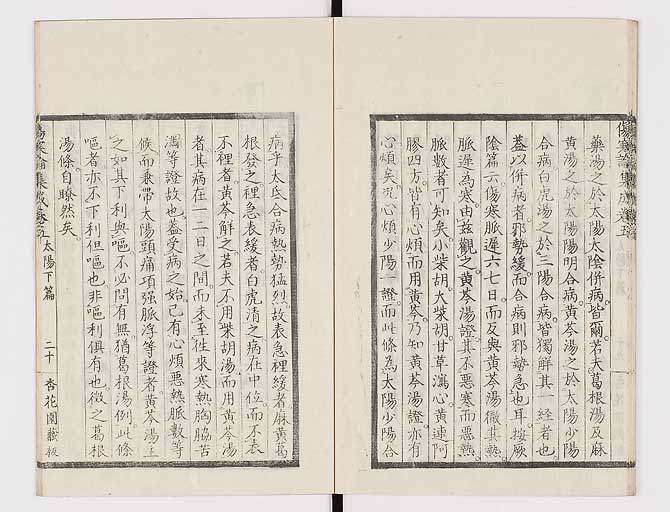 傷寒論集成卷五
藥湯之於太陽太陰併病皆爾若夫葛根湯及麻
黃湯之於太陽陽明合病黃芩湯之於太陽少陽
合病白虎湯之於三陽合病皆獨解其一經者也
葢以併病者邪勢緩而合病則邪勢急也耳按厥
陰篇云傷寒脈遲六七日而反與黃芩湯徹其熱
脈遲爲寒由茲觀之黃芩湯證其不惡寒而惡熱
脈數者可知矣小柴胡大柴胡甘草瀉心黃連阿
膠四方皆有心煩而用黃芩乃知黃芩湯證亦有
心煩矣况心煩少陽一證而此條爲太陽少陽合
病乎太氐合病熱勢猛烈故表急裡緩者麻黃葛
根發之裡急表緩者白虎清之病在中位而不表
不裡者黃芩解之若夫不用柴胡湯而用黃芩湯
者其病在一二日之間而未至徃來寒熱胸脇苦
滿等證故也葢受病之始已有心煩惡熱脈數等
候而兼帶太陽頭痛項强脈浮等證者黃芩湯主
之如其下利與嘔不必問有無猶葛根湯例此條
嘔者亦不下利但嘔也非嘔利俱有也徴之葛根
湯條自瞭然矣
傷寒論集成卷五 太陽下篇 二十 杏花園藏板